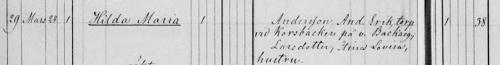 29 Mars 28. 1 Hilda Maria 1 Andersson, And. Erik torp. 1 38
vid Korsbacken på v. Backarg,
Larsdotter, Stina Lovisa,
hustru.